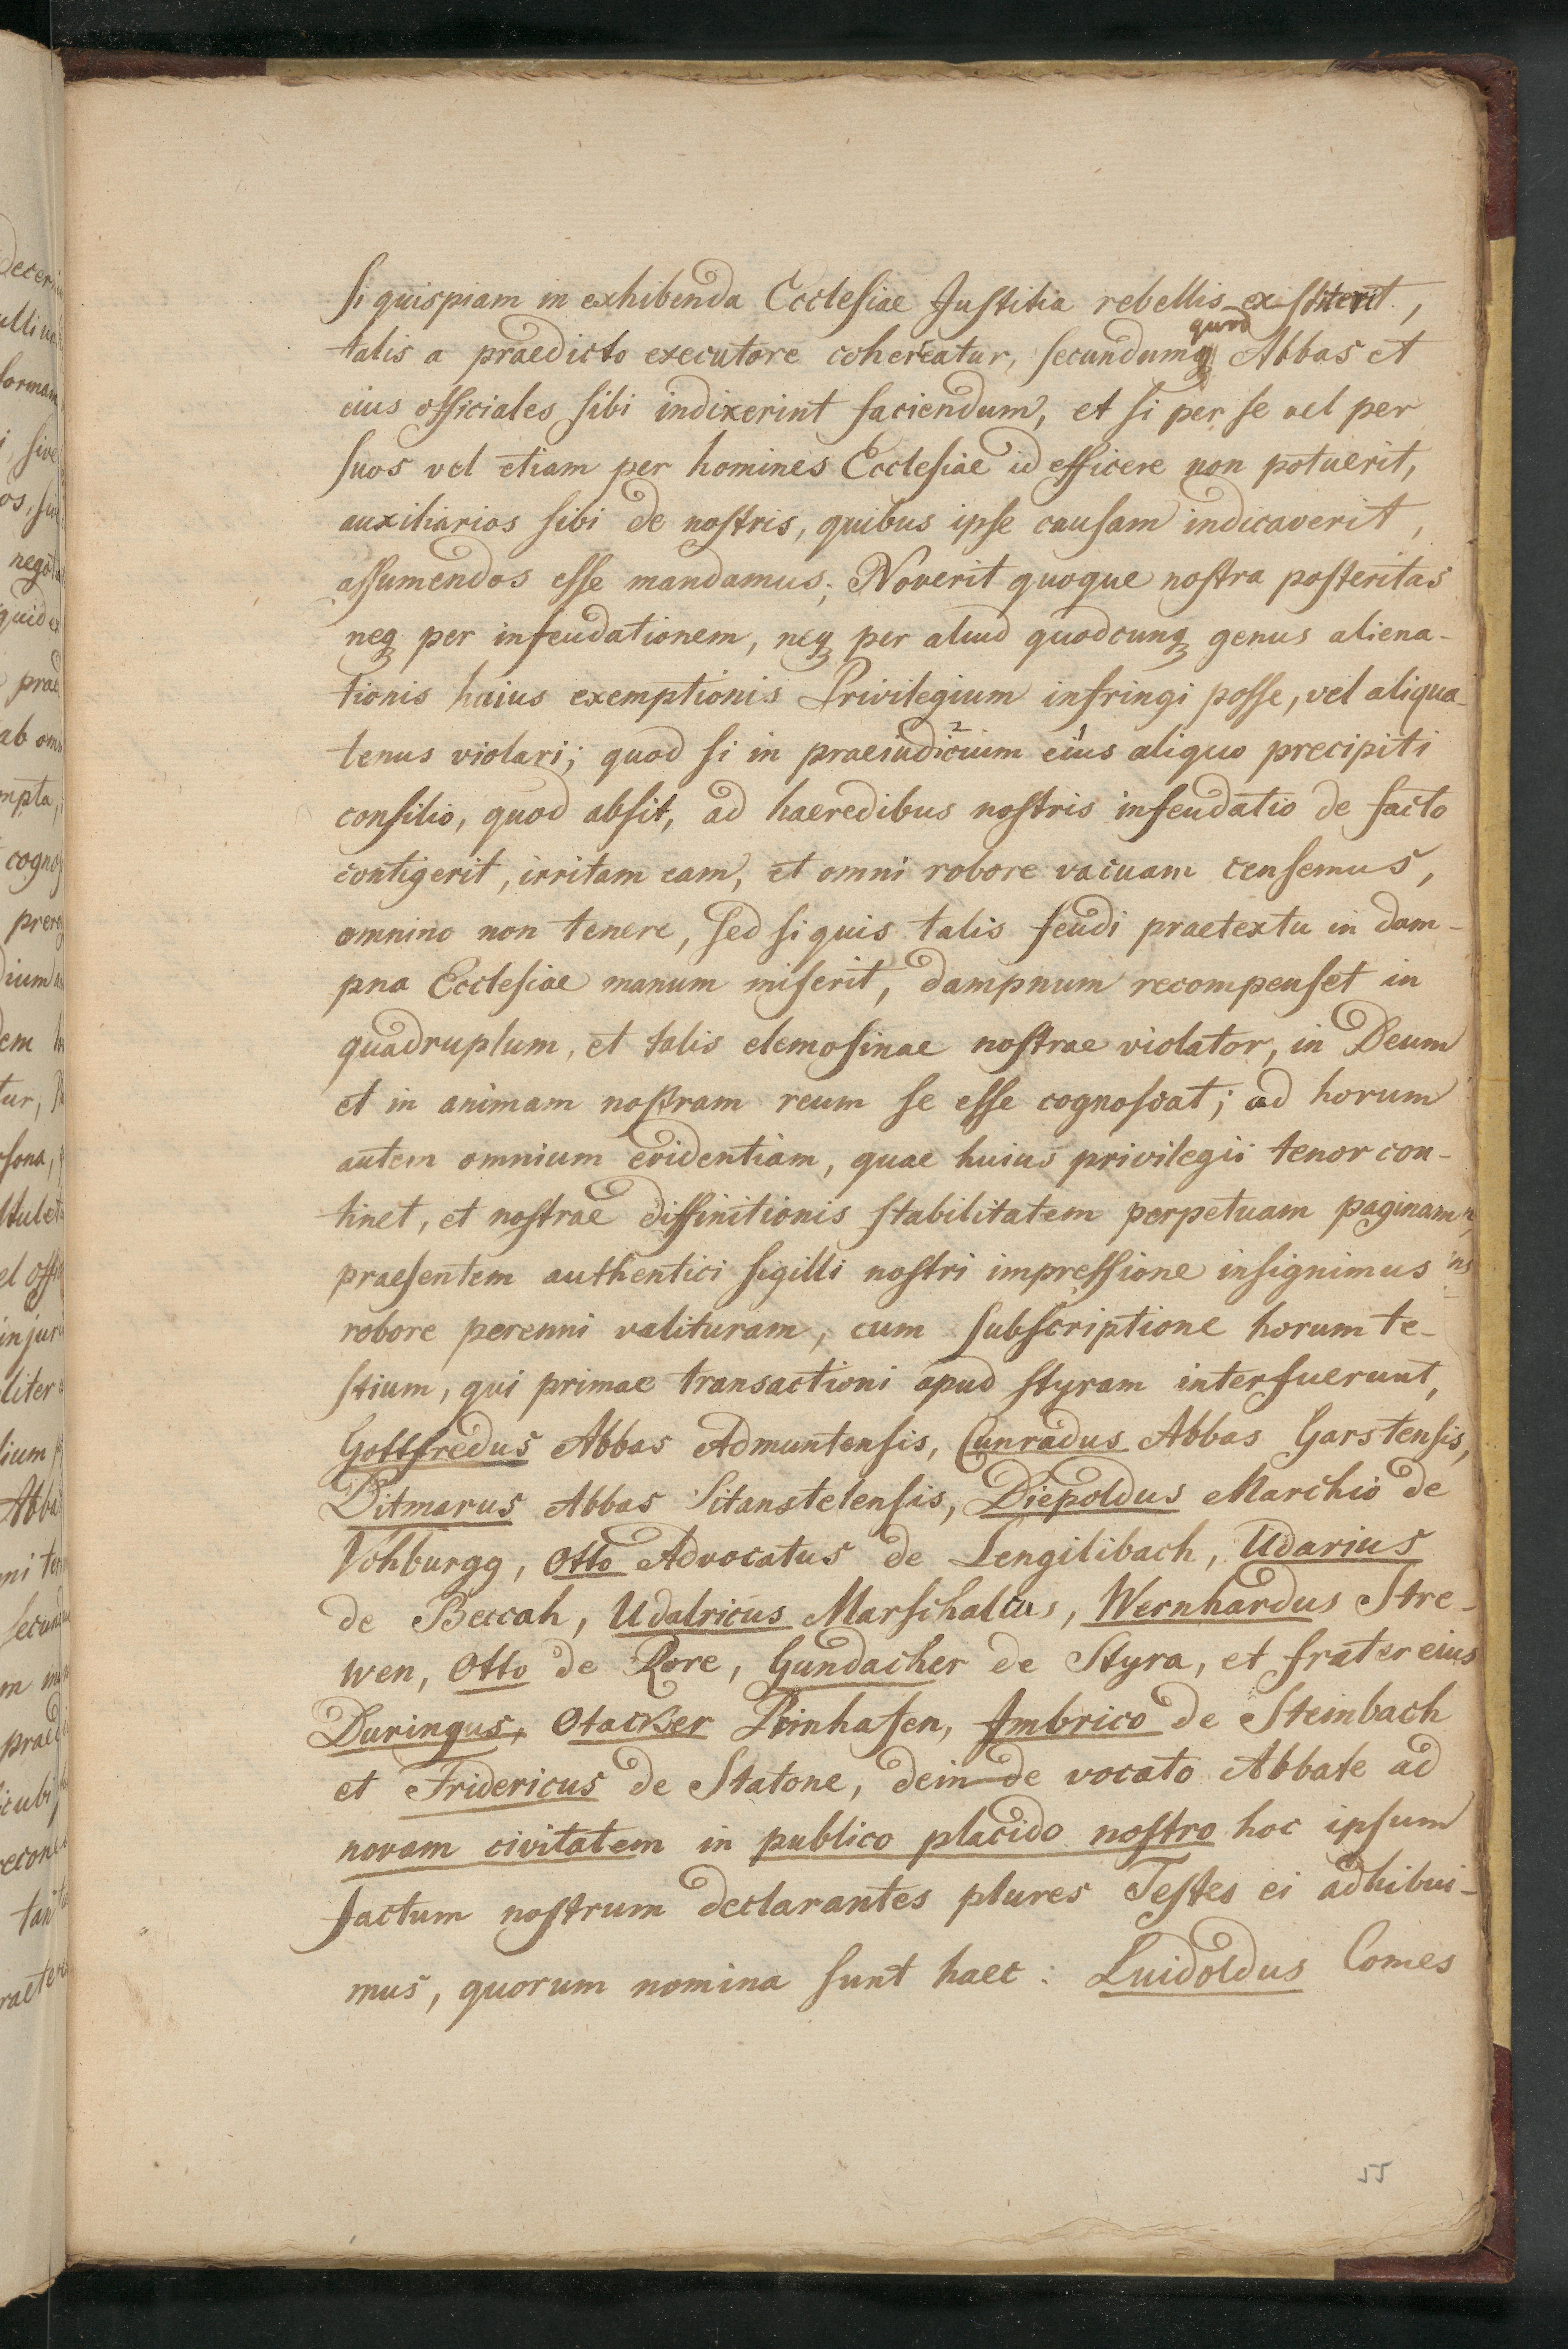 Si quispiam in exhibenda Ecclesiae Justitia rebellis extiterit,
quod
talis a praedicto executore coherceatur, secundum Abbas et
eius officiales sibi indixerint faciendum, et si per se vel per
suos vel etiam per homines Ecclesiae id efficere non potuerit,
auxiliarios sibi de nostris, quibus ipse causam indicaverit,
assumendos esse mandamus; Noverit quoque nostra posteritas
neq per infeudationem, neq per aliud quodcunq genus aliena-
tionis huius exemptionis Privilegium infringi posse, vel aliqua-
tenus violari; quod si in praeiudicium eius aliquo precipiti
consilio, quod absit, ad haeredibus nostris infeudatio de facto
contigerit, irritam eam, et omni robore vacuam censemus,
omnino non tenere, sed si quis talis feudi praetextu in dam-
pna Ecclesiae manum miserit, dampnum recompenset in
quadruplum, et talis elemosinae nostrae violator, in Deum
et in animam nostram reum se esse cognoscat; ad horum
autem omnium evidentiam, quae huius privilegii tenor con-
tinet, et nostrae diffinitionis stabilitatem perpetuam paginam
praesentem authentici sigilli nostri impressione insignimus
robore perenni valituram, cum subscriptione horum te-
stium, qui primae transactioni apud styram interfuerunt,
Gottfredus Abbas Admuntensis, Cunradus Abbas Garstensis,
Ditmarus Abbas Sitanstetensis, Diepoldus Marchio de
Vohburgg, Otto Advocatus de Lengilibach, Udarius
de Beccah, Udalricus Marschalcus, Wernhardus Stre-
wen, Otto de Rore, Gundacher de Styra, et frater eius
Duringus, Otacker Prinhafen, Imbrico de Steinbach
et Fridericus de Statone, deinde vocato Abbate ad
novam civitatem in publico placido nostro hoc ipsum
factum nostrum declarantes plures Testes ei adhibui-
mus, quorum nomina sunt haec: Luidoldus Comes